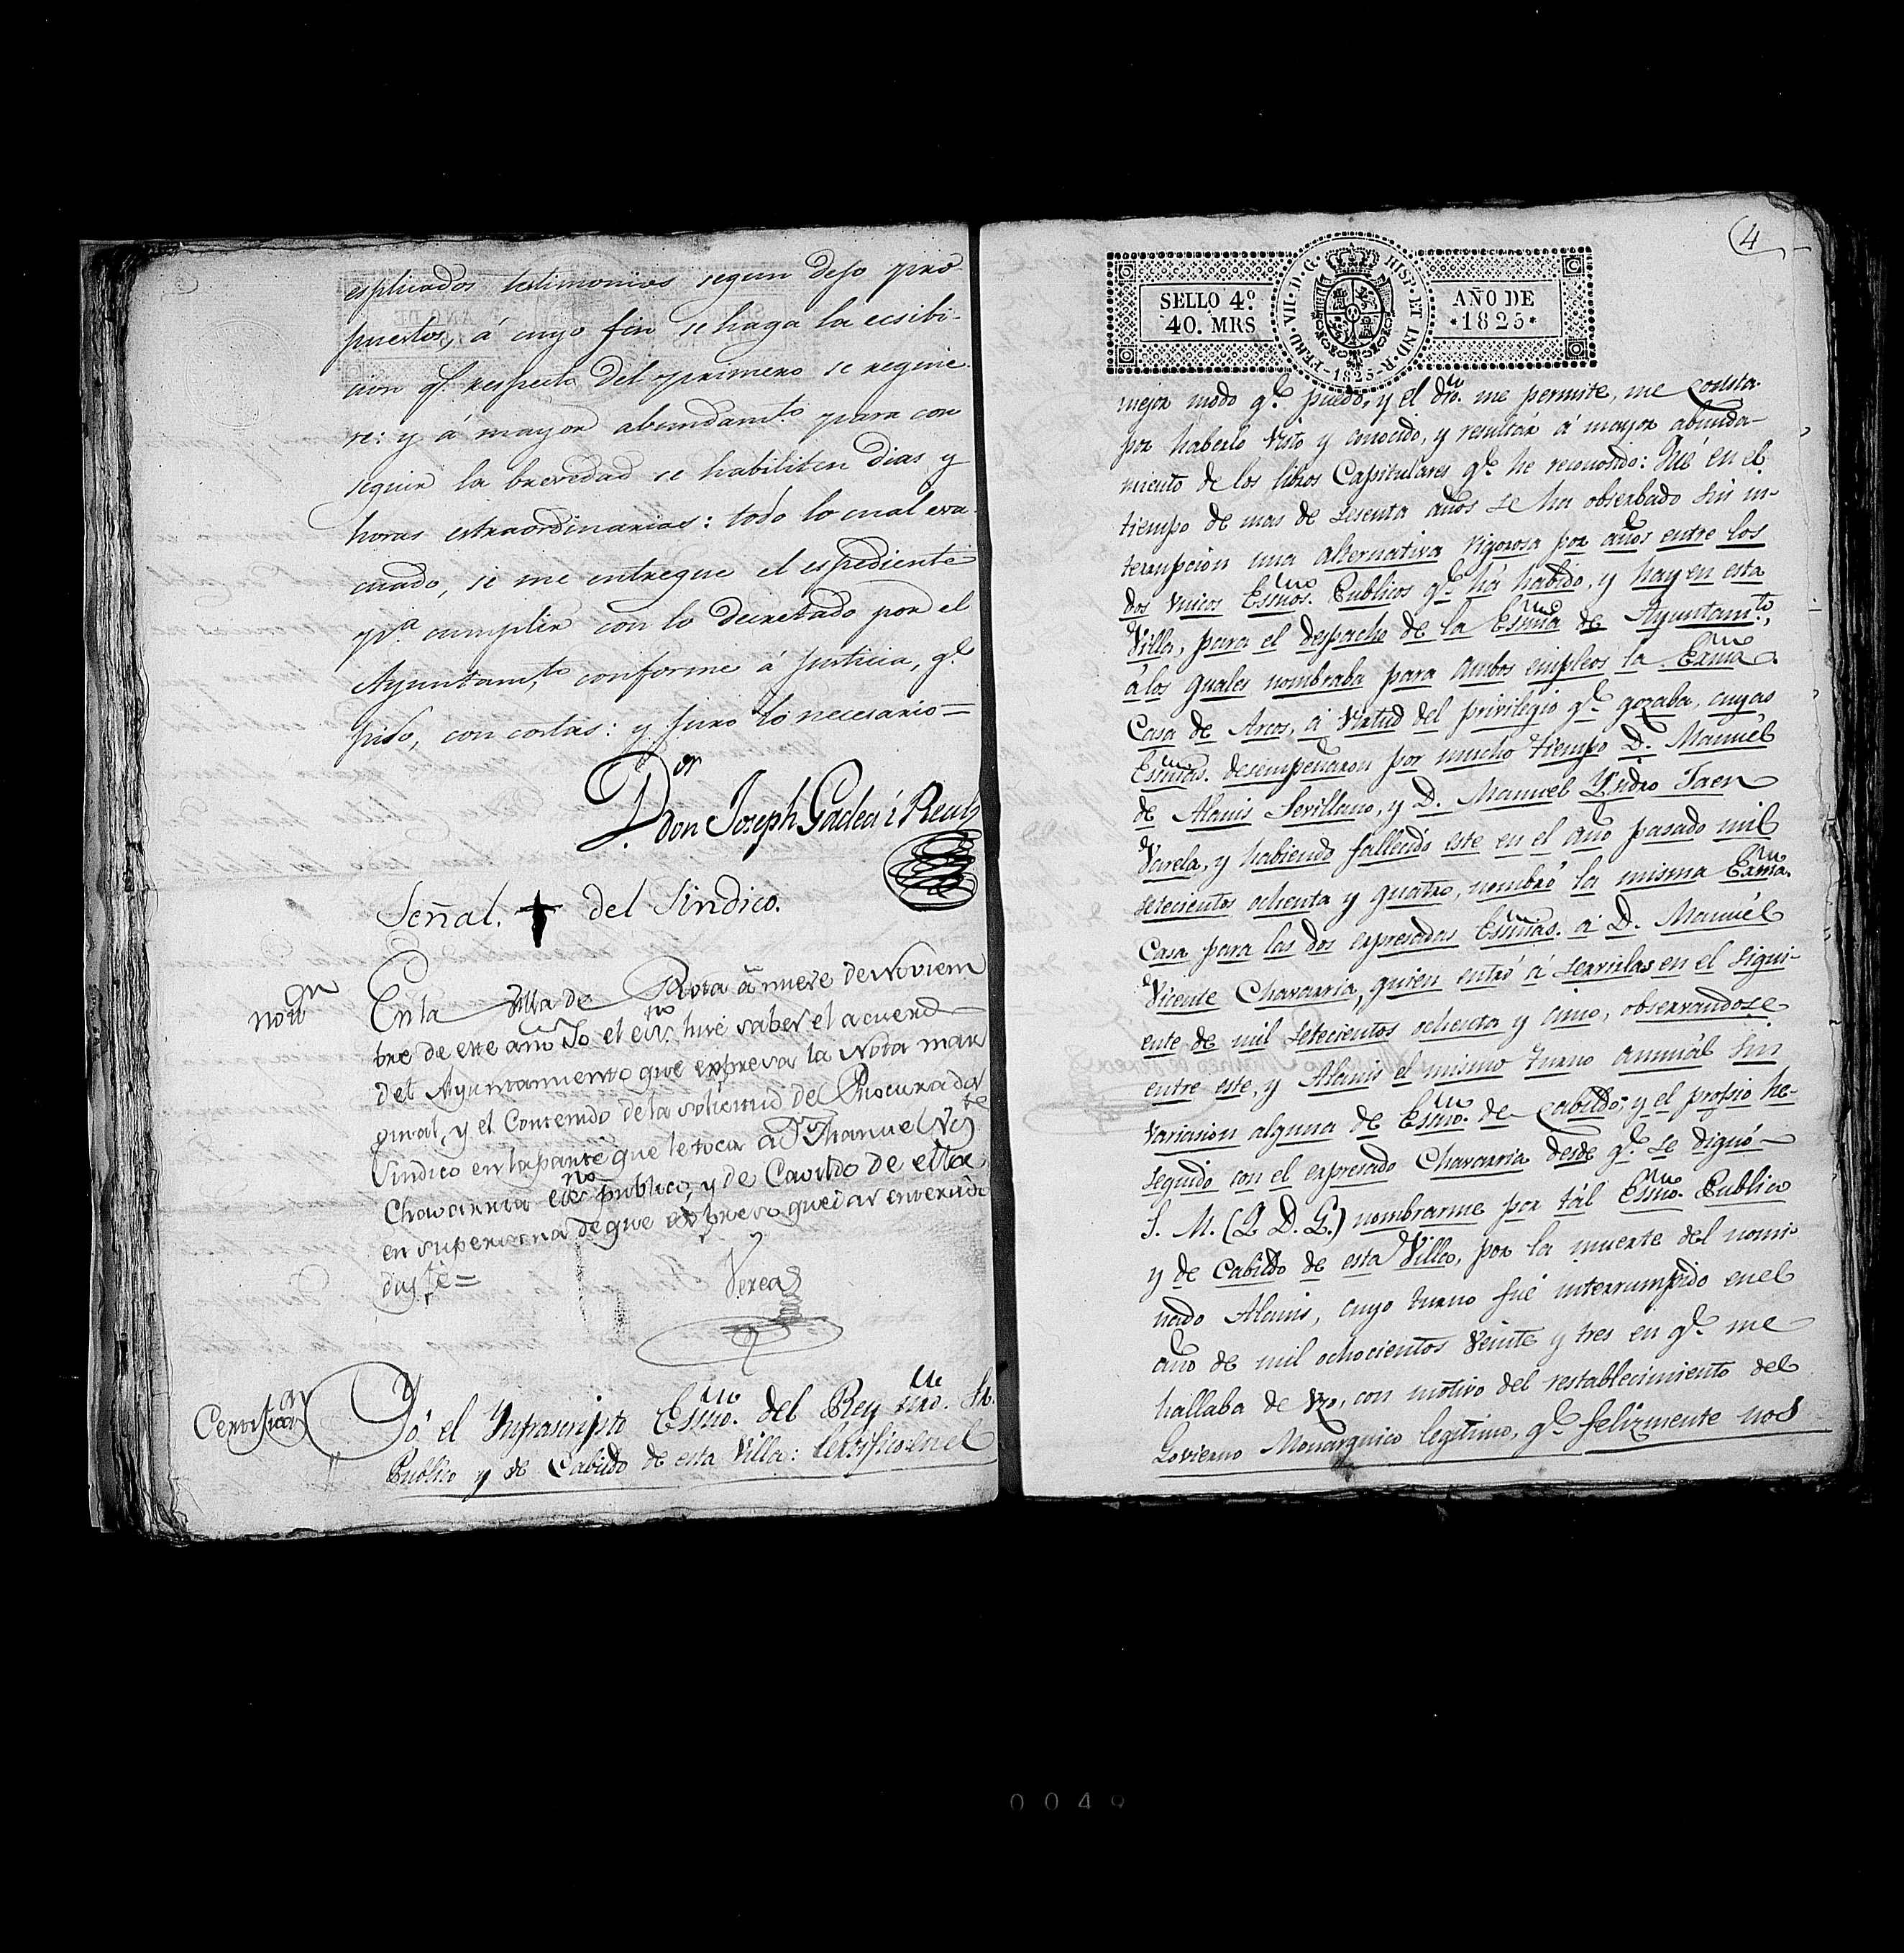 esplicados testimonios segun dejo pro
puestos, á cuyo fin se haga la ecsibi-
cion qe. respecto del primero se regie-
re: y á mayor abundamto. para con
seguir la brevedad se habiliten dias y
horas estraordinarias: todo lo cual eva-
cuado, se me entregue el espediente
pa. cumplir con lo decretado por el
Ayuntamto. conforme á justicia, qe.
pido, con costas: y juro lo necesario=
Dor. don Joseph Gadea i Reul
Señal. ✝ del Sindico.
noton
En la Villa de Rota á nueve de Noviem
bre de este año Yo el esno. hice saber el acuerd
del Ayuntamiento que expresa la Nota mar
ginal, y el Contenido de la solicitud del Procurador
Sindico en la parte que le toca a Dn. Manuel Vizte.
Chavarria esno. publico, y de Cavildo de esta
en su persona de que expreso quedar entendi
doy fe=
Verea
Certificon
Yó el Infrascripto Essno. del Rey nro. Sr.
Publico y de Cabildo de esta Villa: Certifico en el
4
SELLO 4º
40. MRS
FERD · VII · D · G · HISP · ET IND · R · 1825 ·
AÑO DE
*1825*
mejor modo qe. puedo, y el dro. me permite, me consta
por haberlo visto y conocido, y resultár á mayor abunda-
miento de los libros Capitulares qe. he reconosido: Qué en el
tiempo de mas de sesenta años se ha obserbado sin in-
terrupcion una alternativa rigorosa por años entre los
dos unicos Essnos. Publicos qe. há habido, y hay en esta
Villa, para el despacho de la Essnia de Ayuntamto.,
á los quales nombraba para ambos empleos la Exma.
Casa de Arcos, á virtud del privilegio qe. gozaba, cuyas
Essnias. desempeñaron por mucho tiempo D. Manuél
de Alanis Sevillano, y D. Manuel Ysidro Jaen
Varela, y habiendo fallecido este en el año pasado mil
setecientos ochenta y quatro, nombró la misma Exma.
Casa para las dos expresadas Essnias. á D. Manuél
Vicente Chavarria, quien entró á servirlas en el sigui-
ente de mil setecientos ochenta y cinco, observandose
entre este, y Alanis el mismo turno annuál sin
variasion alguna de Essno. de Cabildo; y el propio he
seguido con el expresado Chavarria desde qe. se dignó
S. M. (Q. D. G.) nombrarme por tál Essno. Publico
y de Cabildo de esta Villa, por la muerte del nomi-
nado Alanis, cuyo turno fué interrumpido en el
año de mil ochocientos veinte y tres en qe. me
hallaba de vzo, con motivo del restablecimiento del
Govierno Monarquico legitimo, qe. felizmente nos
0049